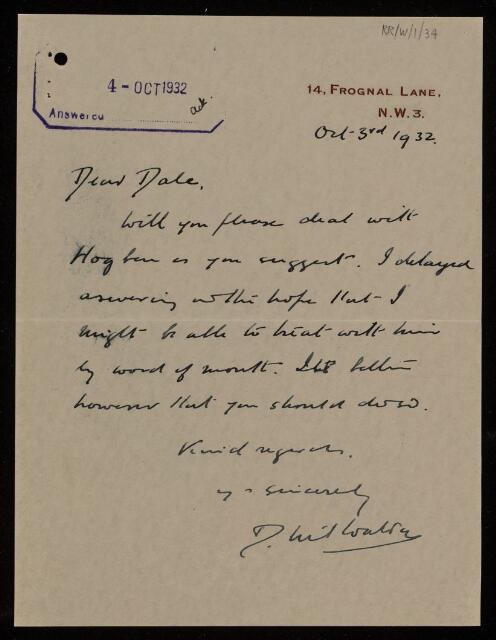 RR/W/1/34
4 - OCT 1932
Answered ack.
14, FROGNAL LANE,
N.W.3.
Oct 3rd 1932.
Dear Dale,
Will you please deal with
Hogben as you suggest. I delayed
answering in the hope that I
might be able to treat with him
by word of mouth. It is better
however that you should do so.
Kind regards.
yrs sincerely